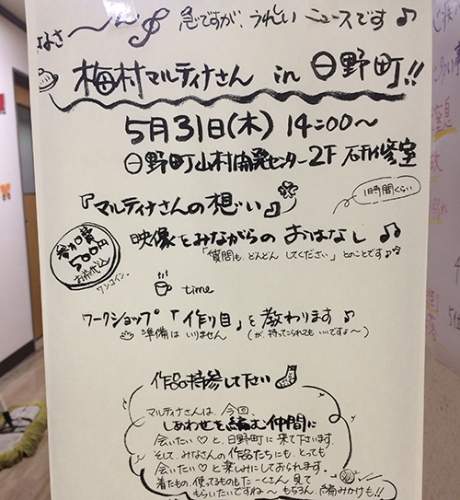 急ですが、うれしいニュースです♪
みなさ〜ん
梅村マルティナさん in 日野町!!
5月31日(木) 14:00〜
日野町山村開発センター2F 研修室
『マルティナさんの想い』
1時間くらい
参加費
500円
お茶代込
ワンコイン
映像をみながらのおはなし♪
「質問もどんどんしてください」とのことです♪
time
ワークショップ「作り目」を教わります♪
準備はいりません
(が、持ってこられてもいいですよ〜)
作品持参して下さい
マルティナさんは、今回、
しあわせを編む仲間に
会いたい♡と、日野町に来て下さいます。
そして、みなさんの作品たちにも、とっても
会いたい♡と楽しみにしておられます。
着たもの、使ってるものもたーくさん見て
もらいたいですね〜 もちろん、
編みかけも!!